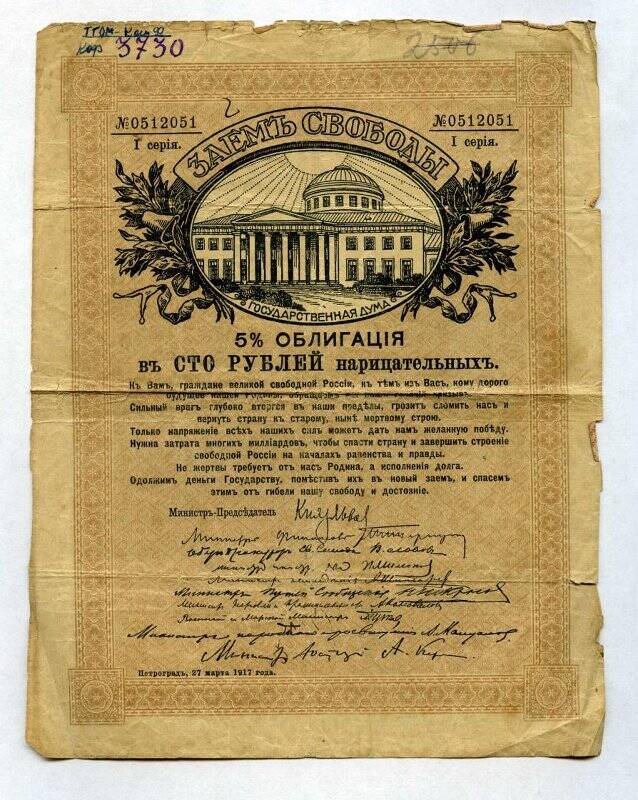 ТГОМ
КОФ 3730
2500
№0512051
№0512051
I серія.
I серія.
ЗАЕМЪ СВОБОДЫ
ГОСУДАРСТВЕННАЯ ДУМА
5% ОБЛИГАЦІЯ
въ СТО РУБЛЕЙ нарицательныхъ.
Къ Вамъ, граждане великой свободной Россіи, къ тѣмъ изъ Васъ, кому дорого
будущее нашей Родины, обращаемъ мы нашъ горячій призывъ.
Сильный врагъ глубоко вторгся въ наши предѣлы, грозитъ сломить насъ и
вернуть страну къ старому, нынѣ мертвому строю.
Только напряженіе всѣхъ нашихъ силъ можетъ дать намъ желанную побѣду.
Нужна затрата многихъ милліардовъ, чтобы спасти страну и завершить строеніе
свободной Россіи на началахъ равенства и правды.
Не жертвы требуетъ отъ насъ Родина, а исполненія долга.
Одолжимъ деньги Государству, помѣстивъ ихъ въ новый заемъ, и спасемъ
этимъ отъ гибели нашу свободу и достояніе.
Министръ-Предсѣдатель Князь Львовъ
Министръ Финансовъ
Оберъ-Прокуроръ Св. Синода В. Львовъ
Министръ Путей Сообщенія
Военный и Морской Министръ
Министръ народнаго просвѣщенія А. Мануйловъ
Министръ Юстиціи А. Кер
Петроградъ, 27 марта 1917 года.